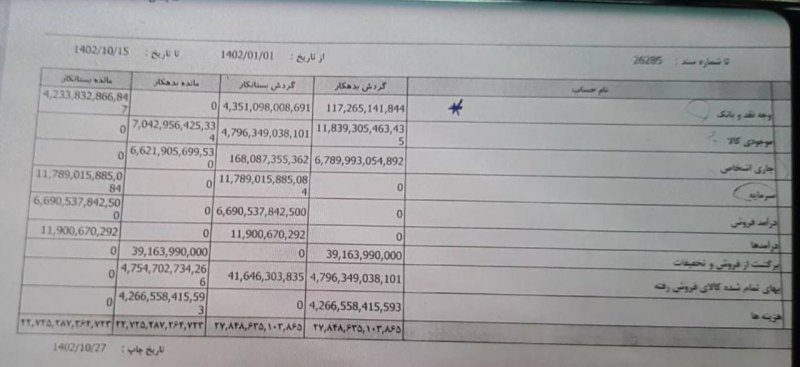 تا شماره سند : 26285 از تاریخ : 1402/01/01 تا تاریخ : 1402/10/15
نام حساب گردش بدهکار گردش بستانکار مانده بدهکار مانده بستانکار
وجه نقد و بانک 117,265,141,844 4,351,098,008,691 0 4,233,832,866,847
موجودی کالا 11,839,305,463,435 4,796,349,038,101 7,042,956,425,334 0
جاری اشخاص 6,789,993,054,892 168,087,355,362 6,621,905,699,530 0
سرمایه 0 11,789,015,885,084 0 11,789,015,885,084
درآمد فروش 0 6,690,537,842,500 0 6,690,537,842,500
درآمدها 0 11,900,670,292 0 11,900,670,292
برگشت از فروش و تخفیفات 39,163,990,000 0 39,163,990,000 0
بهای تمام شده کالای فروش رفته 4,796,349,038,101 41,646,303,835 4,754,702,734,266 0
هزینه ها 4,266,558,415,593 0 4,266,558,415,593 0
۲۷,۸۴۸,۶۳۵,۱۰۳,۸۶۵ ۲۷,۸۴۸,۶۳۵,۱۰۳,۸۶۵ ۲۲,۷۲۵,۲۸۷,۲۶۴,۷۲۳ ۲۲,۷۲۵,۲۸۷,۲۶۴,۷۲۳
تاریخ چاپ : 1402/10/27